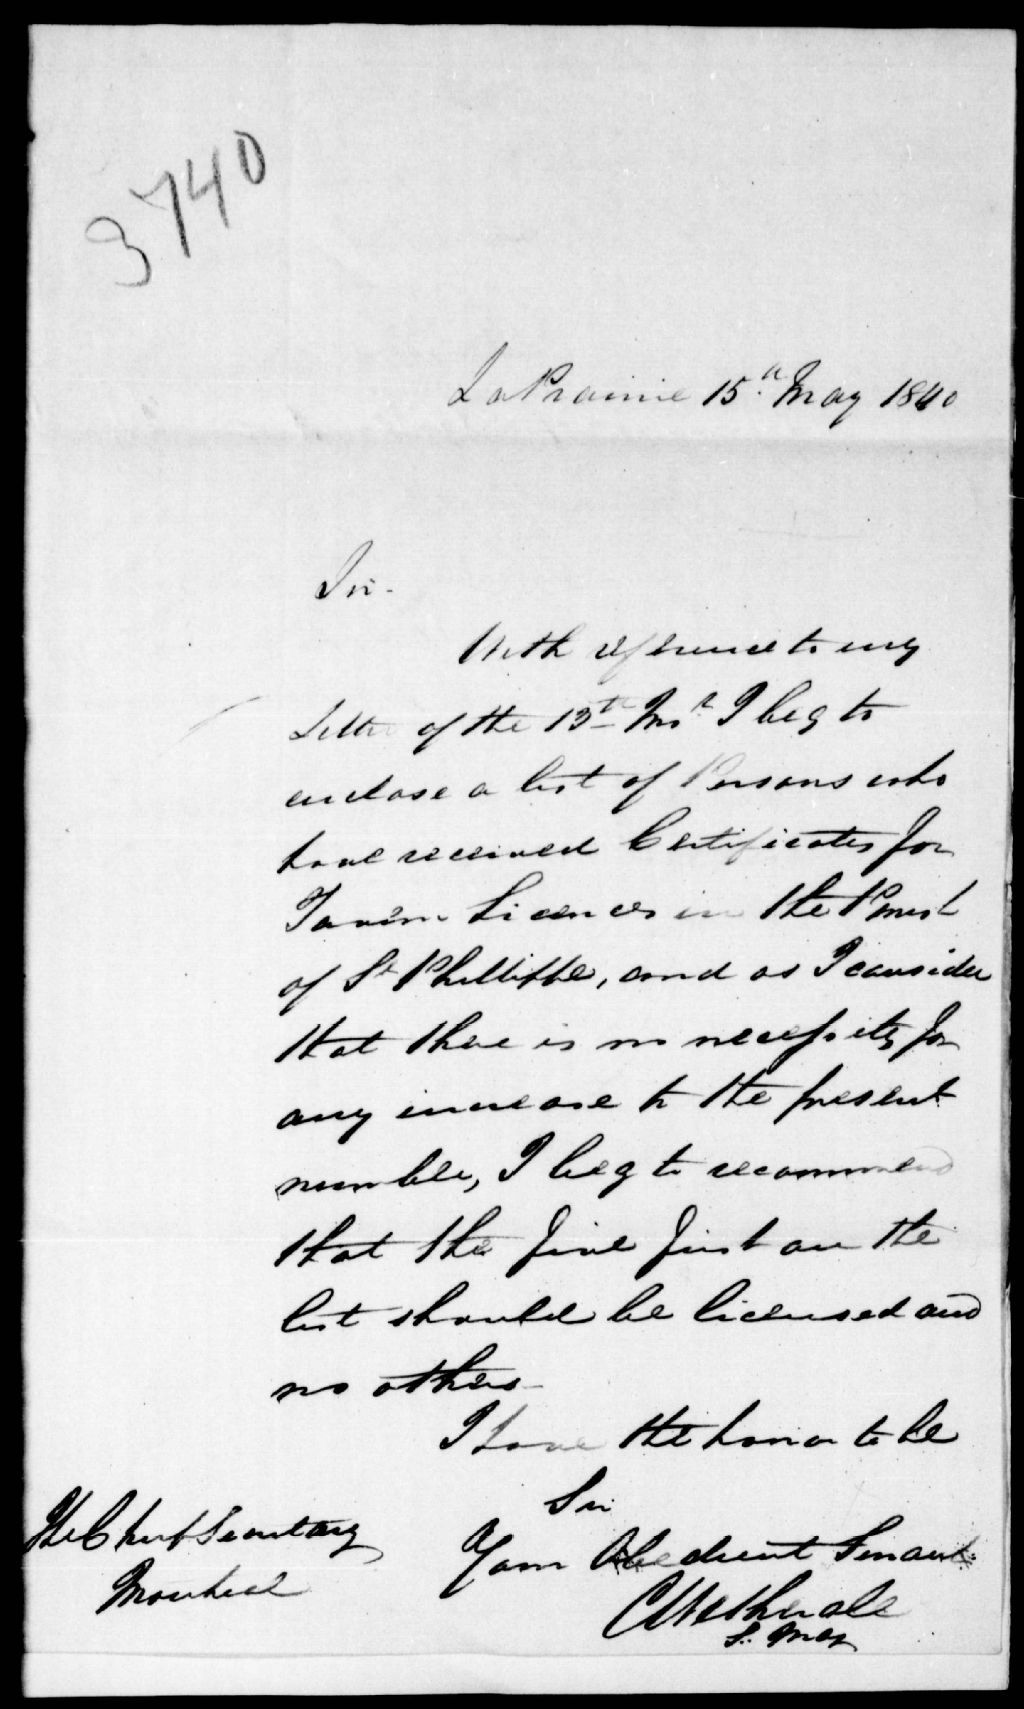 3740
LaPrairie 15th May 1840
Sir.
With reference to my
Letter of the 13th Inst I beg to
enclose a list of Persons who
have received Certificates for
Tavern Licences in the Parish
of St Phillippe, and as I consider
that there is no necessity for
any increase to the present
number, I beg to recommend
that the five first on the
list should be licensed and
no others
I have the honor to be
Sir
Your Obedient Servant
CWetherall
S. Mag
The Chief Secretary
Montreal